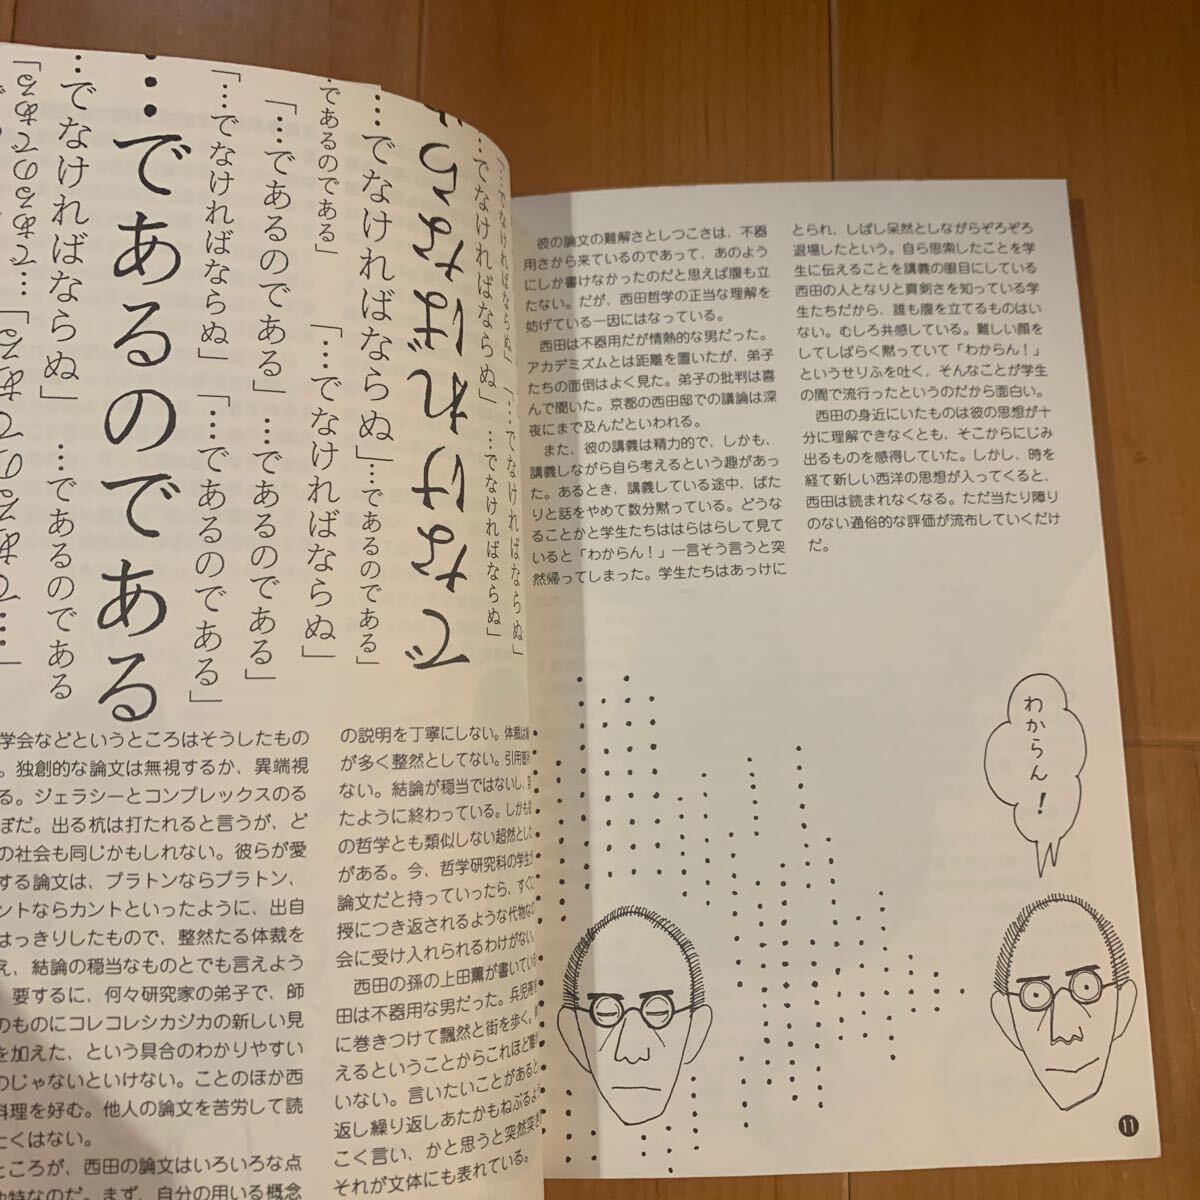 「…であるのである
…でなければならぬ」
…であるのである
…であるのである
「…でなければならぬ」
「…であるのである」
「…であるのである」
…であるのである」
であるのである」
「…でなければならぬ」
…でなければならぬ」
…であるのである」
でなければなら
…でなければならぬ」
…でなければならぬ」
「…でなければならぬ」
「…でなければならぬ」
学会などというところはそうしたもの
。独創的な論文は無視するか、異端視
る。ジェラシーとコンプレックスのる
ぼだ。出る杭は打たれると言うが、ど
の社会も同じかもしれない。彼らが愛
する論文は、プラトンならプラトン、
ントならカントといったように、出自
はっきりしたもので、整然たる体裁を
え、結論の穏当なものとでも言えよう
。要するに、何々研究家の弟子で、師
のものにコレコレシカジカの新しい見
を加えた、という具合のわかりやすい
のじゃないといけない。ことのほか西
料理を好む。他人の論文を苦労して読
たくはない。
ところが、西田の論文はいろいろな点
独特なのだ。まず、自分の用いる概念
の説明を丁寧にしない。体裁は
が多く整然としてない。引用
ない。結論が穏当ではないし、
たように終わっている。しかも
の哲学とも類似しない超然とした
がある。今、哲学研究科の学生が
論文だと持っていったら、すぐに
授につき返されるような代物な
会に受け入れられるわけがない。
西田の孫の上田薫が書いている
田は不器用な男だった。兵児帯を
に巻きつけて飄然と街を歩く。
えるということからこれほど
いない。言いたいことがあると
返し繰り返しあたかもねぶるよう
こく言い、かと思うと突然突き
それが文体にも表れている。
彼の論文の難解さとしつこさは、不器
用さから来ているのであって、あのよう
にしか書けなかったのだと思えば腹も立
たない。だが、西田哲学の正当な理解を
妨げている一因にはなっている。
西田は不器用だが情熱的な男だった。
アカデミズムとは距離を置いたが、弟子
たちの面倒はよく見た。弟子の批判は喜
んで聞いた。京都の西田邸での議論は深
夜にまで及んだといわれる。
また、彼の講義は精力的で、しかも、
講義しながら自ら考えるという趣があっ
た。あるとき、講義している途中、ばた
りと話をやめて数分黙っている。どうな
ることかと学生たちははらはらして見て
いると「わからん！」一言そう言うと突
然帰ってしまった。学生たちはあっけに
とられ、しばし呆然としながらぞろぞろ
退場したという。自ら思索したことを学
生に伝えることを講義の眼目にしている
西田の人となりと真剣さを知っている学
生たちだから、誰も腹を立てるものはい
ない。むしろ共感している。難しい顔を
してしばらく黙っていて「わからん！」
というせりふを吐く、そんなことが学生
の間で流行ったというのだから面白い。
西田の身近にいたものは彼の思想が十
分に理解できなくとも、そこからにじみ
出るものを感得していた。しかし、時を
経て新しい西洋の思想が入ってくると、
西田は読まれなくなる。ただ当たり障り
のない通俗的な評価が流布していくだけ
だ。
わからん！
11